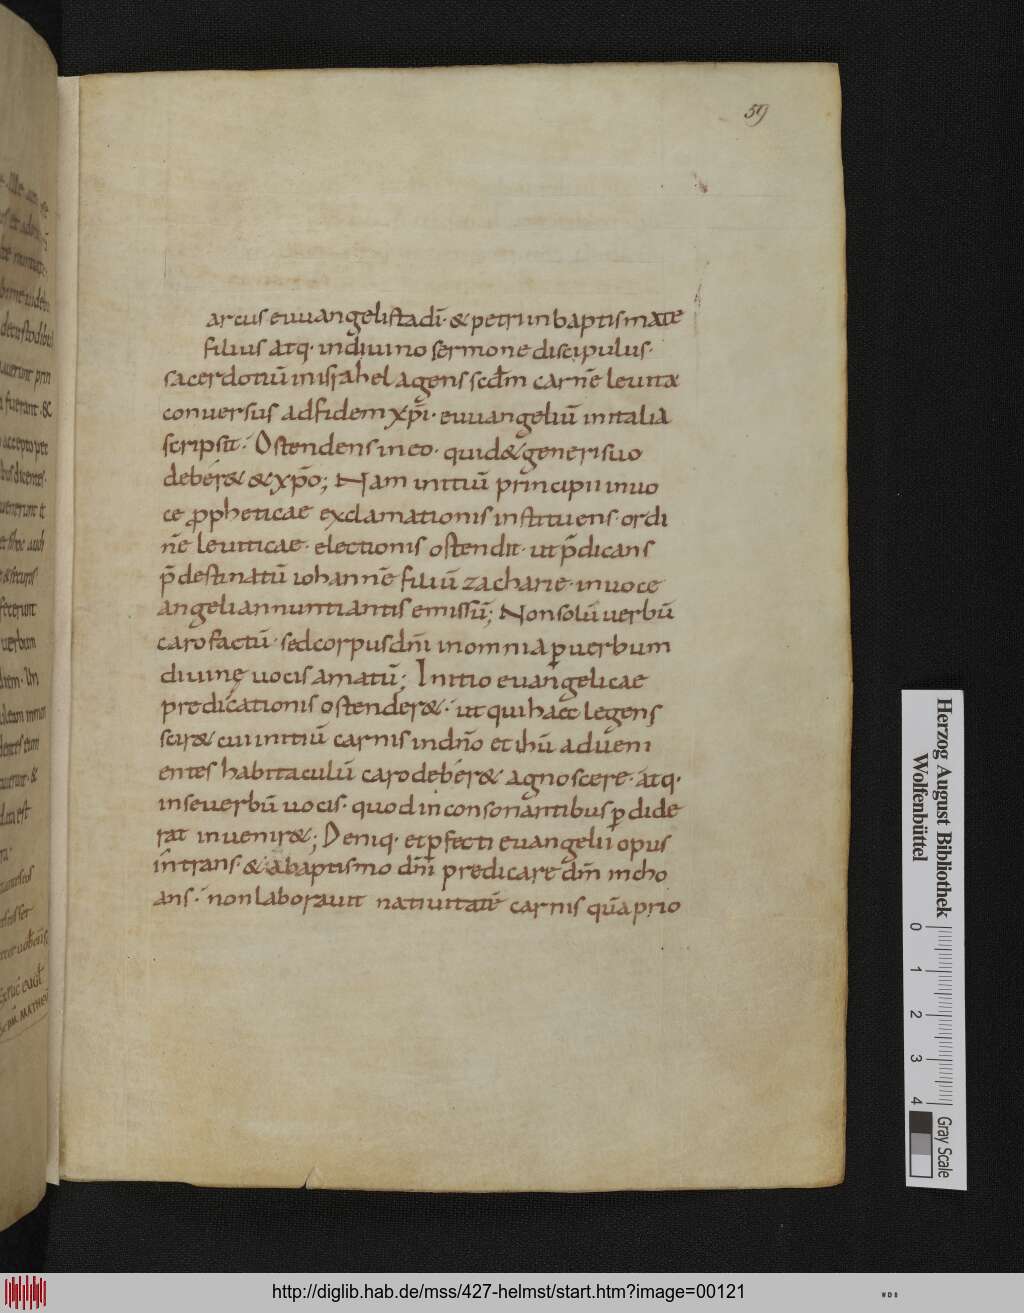 59
arcus euuangelista dī· & petri in baptismate
filius atq· in diuino sermone discipulus·
sacerdotiū in israhel agens scdm̄ carnē leuita
conuersus ad fidem xp̄i· euuangeliū in italia
scripsit· Ostendens in eo· quid & generi suo
deber& & xp̄o; Nam initiū principii in uo
ce propheticae exclamationis instituens· ordi
nē leuiticae· electionis ostendit· ut p̄dicans
p̄destinatū iohannē filiū zacharie· in uoce
angeli annuntiantis emissū; Non solū uerbū
caro factū· sed corpus dn̄i in omnia ꝑ uerbum
diuinę uocis amatū; Initio evangelicae
predicationis ostender&· ut qui haec legens
scir& cui initiū carnis in dn̄o et ihū adueni
entes habitaculū caro deber& agnoscere· atq·
in se uerbū uocis· quod in consonantibus ꝑdide
rat inuenir&; Deniq· et ꝑfecti evangelii opus
intrans & a baptismo dn̄i predicare dm̄ incho
ans· non laborauit natiuitatē carnis quā prio
Herzog August Bibliothek
Wolfenbüttel
0 1 2 3 4
Gray Scale
http://diglib.hab.de/mss/427-helmst/start.htm?image=00121